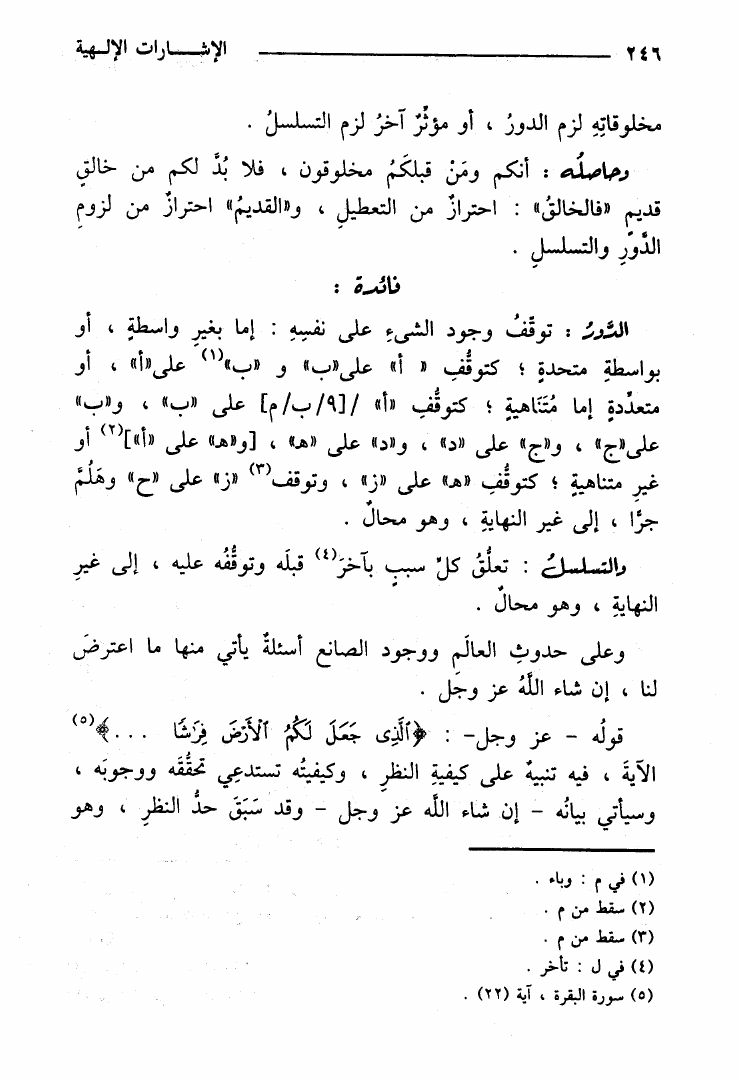 ٢٤٦ الإشــــارات الإلــهية
مخلوقاتِهِ لزم الدورُ ، أو مؤثِّرٌ آخرُ لزم التسلسلُ .
وحاصلُه : أنكم ومَنْ قبلَكَمُ مخلوقون ، فلا بُدَّ لكم من خالقٍ
قديمٍ «فالخالقُ» : احترازٌ من التعطيلِ ، و«القديمُ» احترازٌ من لزومِ
الدَّوْرِ والتسلسلِ .
فائدة :
الدَّورُ : توقّفُ وجود الشىءِ على نفسِهِ : إما بغيرِ واسطةٍ ، أو
بواسطةِ متحدةٍ ؛ كتوقُّفِ « أ» على«ب» و «ب»(١) على«أ» ، أو
متعدِّدةٍ إما مُتَنَاهيةٍ ؛ كتوقُّفِ «أ» /[٩/ب/م] على «ب» ، و«ب»
على«ج» ، و«ج» على «د» ، و«د» على «هـ» ، [و«هـ» على «أ»](٢) أو
غيرِ متناهيةٍ ؛ كتوقُّفِ «هـ» على «ز» ، وتوقف(٣) «ز» على «ح» وهَلُمَّ
جرًّا ، إلى غير النهايةِ ، وهو محالٌ .
والتسلسلُ : تعلُّقُ كلِّ سببٍ بآخرَ(٤) قبلَه وتوقُّفُه عليه ، إلى غيرِ
النهايةِ ، وهو محالٌ .
وعلى حدوثِ العالَمِ ووجود الصانع أسئلةٌ يأتي منها ما اعترضَ
لنا ، إن شاء اللَّهُ عز وجَل .
قولُه – عز وجل– : ﴿ٱلَّذِى جَعَلَ لَكُمُ ٱلْأَرْضَ فِرَٰشًا ...﴾(٥)
الآيةَ ، فيه تنبيهٌ على كيفيةِ النظرِ ، وكيفيتُه تستدعِي تحقُّقَه ووجوبَه ،
وسيأتي بيانُه – إن شاء اللَّه عز وجل – وقد سَبَقَ حدُّ النظرِ ، وهو
(١) في م : وباء .
(٢) سقط من م .
(٣) سقط من م .
(٤) في ل : تأخر .
(٥) سورة البقرة ، آية (٢٢) .